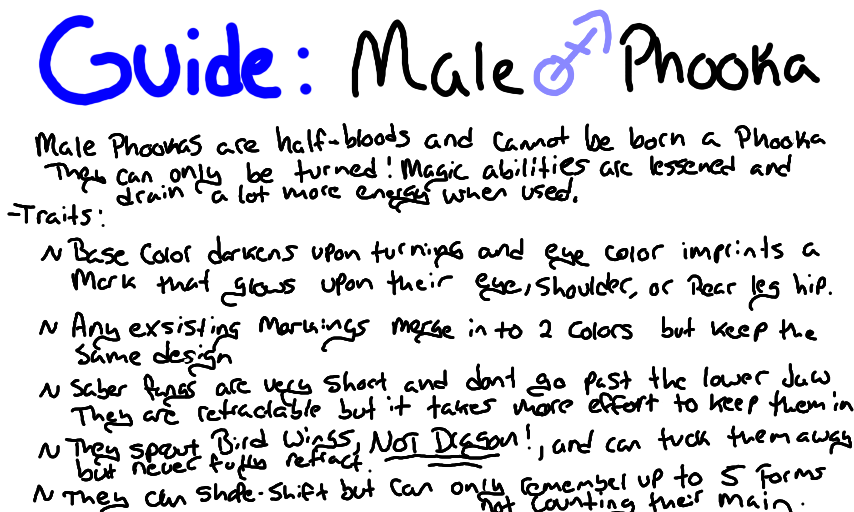 Guide: Male Phooka
Male Phookas are half-bloods and cannot be born a Phooka
They can only be turned! Magic abilities are lessened and
drain a lot more energy when used.
-Traits:
~ Base color darkens upon turning and eye color imprints a
Mark that glows upon their eye, shoulder, or rear leg hip.
~ Any exsisting markings merge in to 2 colors but keep the
same design
~ Saber fangs are very short and dont go past the lower jaw
They are retractable but it takes more effort to keep them in
~ They sprout Bird Wings, NOT Dragon!, and can tuck them away
but never fully retract.
~ They can shape-shift but can only remember up to 5 forms
not counting their main.